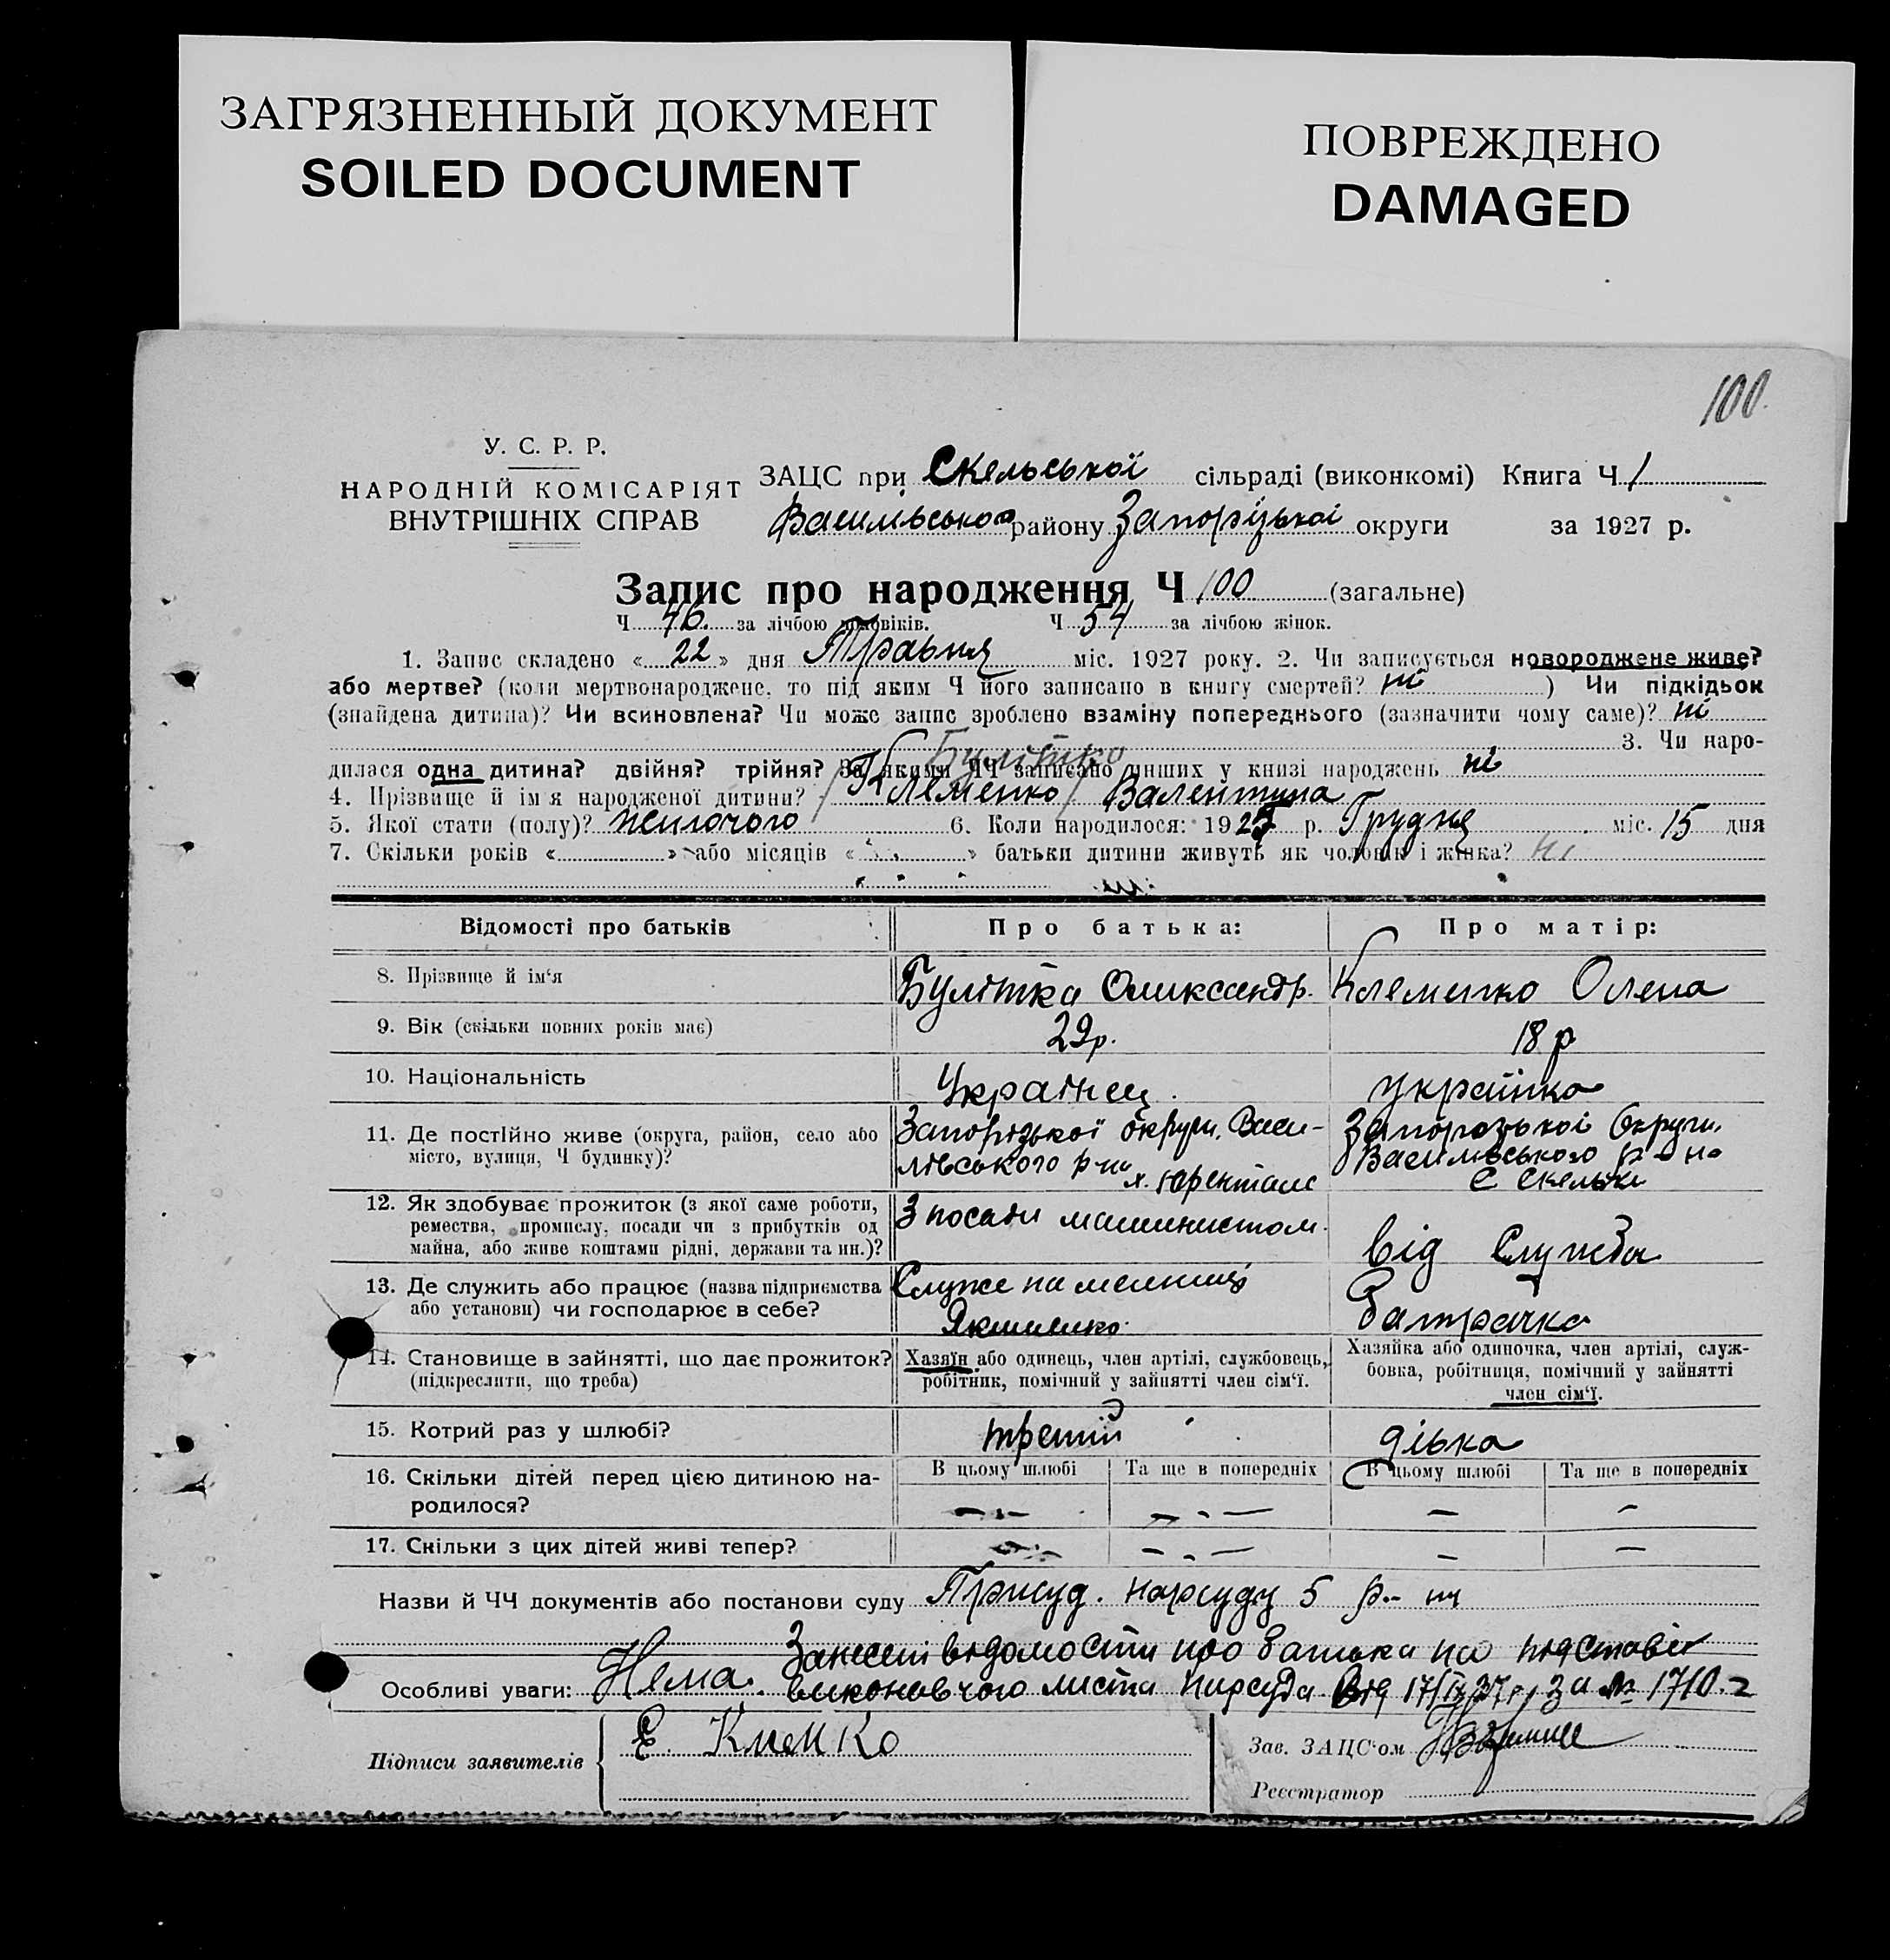 ЗАГРЯЗНЕННЫЙ ДОКУМЕНТ
SOILED DOCUMENT
ПОВРЕЖДЕНО
DAMAGED
100.
У. С. Р. Р.
НАРОДНІЙ КОМІСАРІЯТ
ВНУТРІШНІХ СПРАВ
ЗАЦС при Скельської сільраді (виконкомі) Книга Ч 1
Василівського району Запорізької округи за 1927 р.
Запис про народження Ч 100 (загальне)
Ч 46. за лічбою чоловіків. Ч 54 за лічбою жінок.
1. Запис складено « 22 » дня Травня міс. 1927 року. 2. Чи записується новороджене живе?
або мертве? (коли мертвонароджене, то під яким Ч його записано в книгу смертей? ні ) Чи підкідьок
(знайдена дитина)? Чи всиновлена? Чи може запис зроблено взаміну попереднього (зазначити чому саме)? ні
3. Чи наро-
Булітко
дилася одна дитина? двійня? трійня? За якими ЧЧ записано инших у книзі народжень ні
4. Прізвище й ім'я народженої дитини? /Клеменко/ Валентина
5. Якої стати (полу)? жіночого 6. Коли народилося: 192 р. Грудня міс. 15 дня
7. Скільки років « » або місяців « » батьки дитини живуть як чоловік і жінка? ні
Відомості про батьків
Про батька:
Про матір:
8. Прізвище й ім'я
Булітка Олександр.
Клеменко Олена
9. Вік (скільки повних років має)
29р.
18 р
10. Національність
Українец.
українка
11. Де постійно живе (округа, район, село або
місто, вулиця, Ч будинку)?
Запорізької округи, Васи-
лівського р-ну
х.
Запорозької Округи,
Василівського р-на
с Скельки
12. Як здобуває прожиток (з якої саме роботи,
ремества, промислу, посади чи з прибутків од
майна, або живе коштами рідні, держави та ин.)?
З посади машинистом.
від Служба
13. Де служить або працює (назва підприємства
або установи) чи господарює в себе?
Служе на мельниці
Якименко.
батрачка
14. Становище в зайнятті, що дає прожиток?
(підкреслити, що треба)
Хазяїн або одинець, член артілі, службовець,
робітник, помічний у зайнятті член сім'ї.
Хазяйка або одиночка, член артілі, служ-
бовка, робітниця, помічний у зайнятті
член сім'ї.
15. Котрий раз у шлюбі?
третій
дівка
16. Скільки дітей перед цією дитиною на-
родилося?
В цьому шлюбі
Та ще в попередніх
В цьому шлюбі
Та ще в попередніх
17. Скільки з цих дітей живі тепер?
Назви й ЧЧ документів або постанови суду Присуд. нарсуду 5 р-
Занесені відомости про батька на підставі
Особливі уваги: Нема. виконавчого листа Нарсуда Від 17/IX 27 р, за № 1710.
Підписи заявителів
Зав. ЗАЦС'ом
Реєстратор